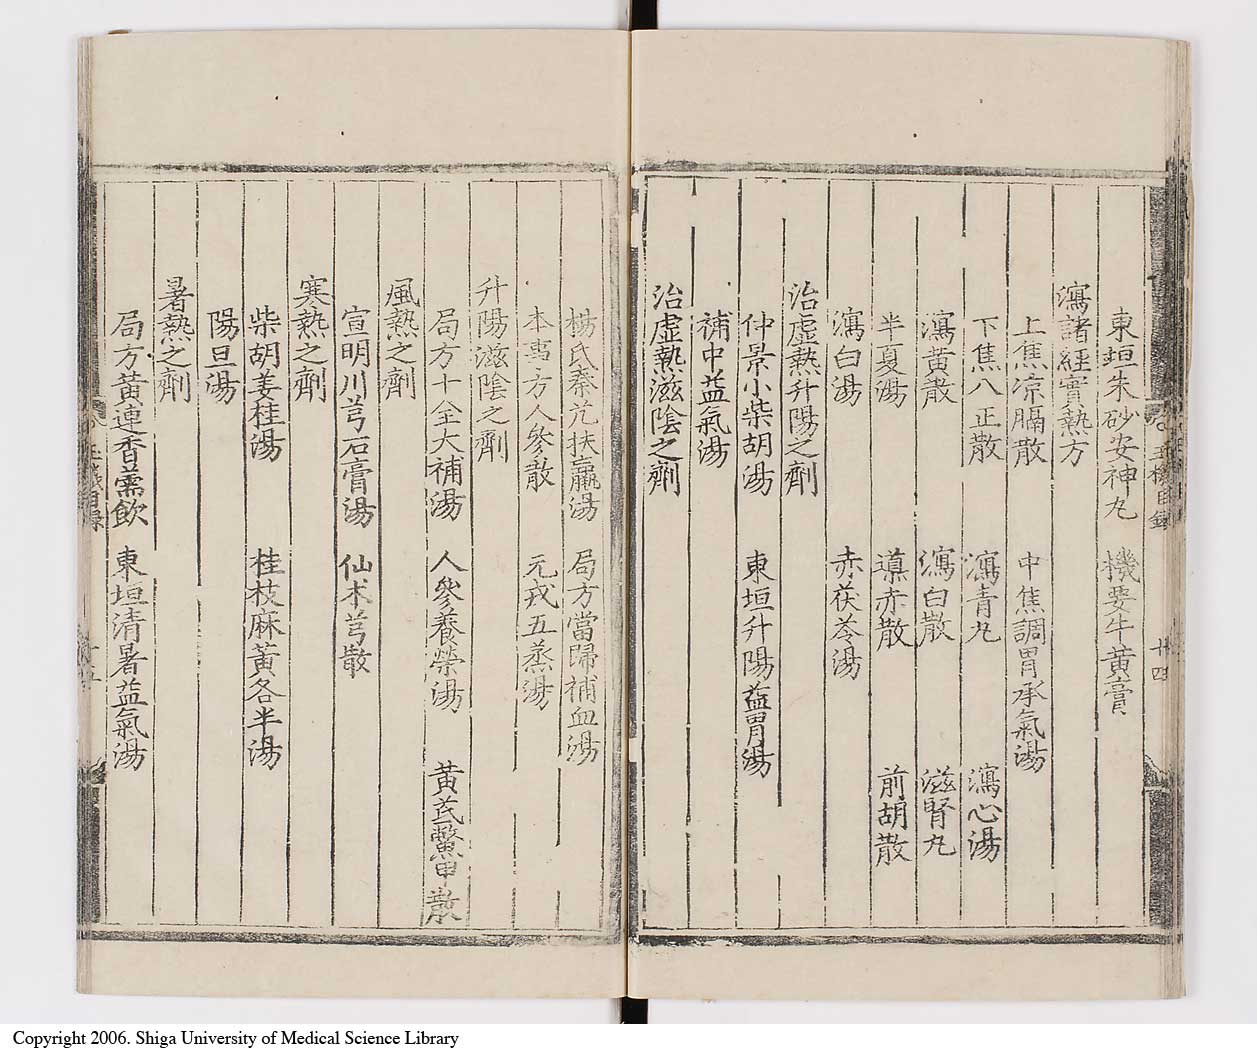 東垣朱砂安神丸 機要牛黃膏
瀉諸經實熱方
上焦凉膈散 中焦調胃承氣湯
下焦八正散 瀉青丸 瀉心湯
瀉黃散 瀉白散 滋腎丸
半夏湯 導赤散 前胡散
瀉白湯 赤茯苓湯
治虛熱升陽之劑
仲景小柴胡湯 東垣升陽益胃湯
補中益氣湯
治虛熱滋陰之劑
楊氏秦艽扶羸湯 局方當歸補血湯
本事方人參散 元戎五蒸湯
升陽滋陰之劑
局方十全大補湯 人參養榮湯 黃芪鱉甲散
風熱之劑
宣明川芎石膏湯 仙术芎散
寒熱之劑
柴胡姜桂湯 桂枝麻黃各半湯
陽旦湯
暑熱之劑
局方黃連香薷飲 東垣清暑益氣湯
玉機目錄 廿四
Copyright 2006. Shiga University of Medical Science Library